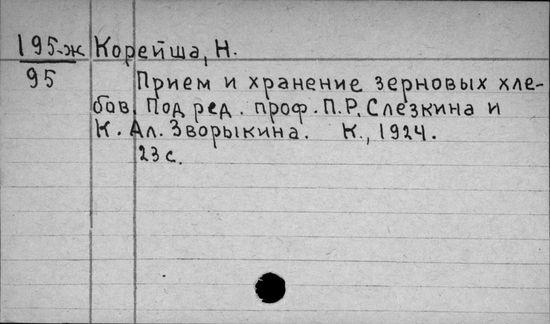 195-ж Корейша, Н.
95
Прием и хранение зерновых хле-
бов. Под ред. проф. П.Р. Слезкина и
К. Ал. Зворыкина. К., 1924.
23 с.